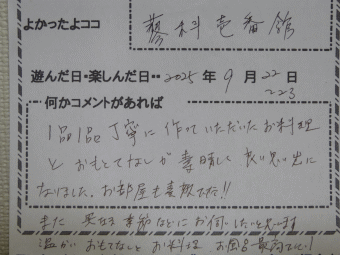 よかったよココ 蓼科壱番館
遊んだ日・楽しんだ日・・2025年9月22日
223
何かコメントがあれば
1品1品丁寧に作っていただいたお料理
とおもてなしが素晴しく良い思い出に
なりました。お部屋も素敵でした!!
また 異なる季節などにお伺いしたいと思います
温かいおもてなしとお料理 お風呂最高でした!